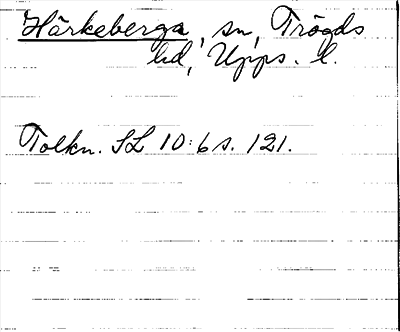 Härkeberga, sn, Trögds
hd, Upps. l.
Tolkn. SL 10:6 s. 121.